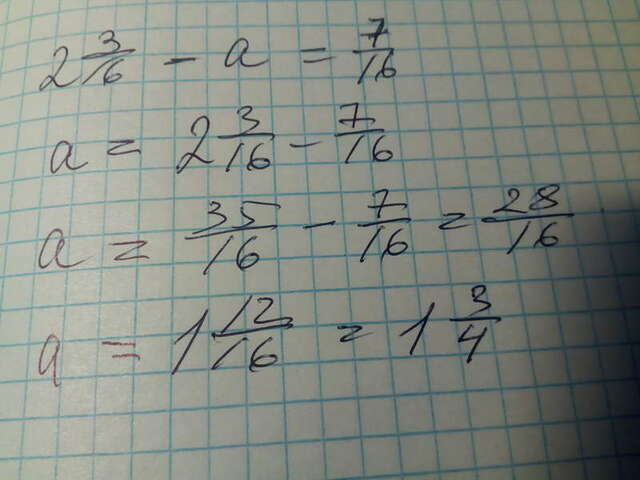 2 3/16 - a = 7/16
a = 2 3/16 - 7/16
a = 35/16 - 7/16 = 28/16
a = 1 12/16 = 1 3/4